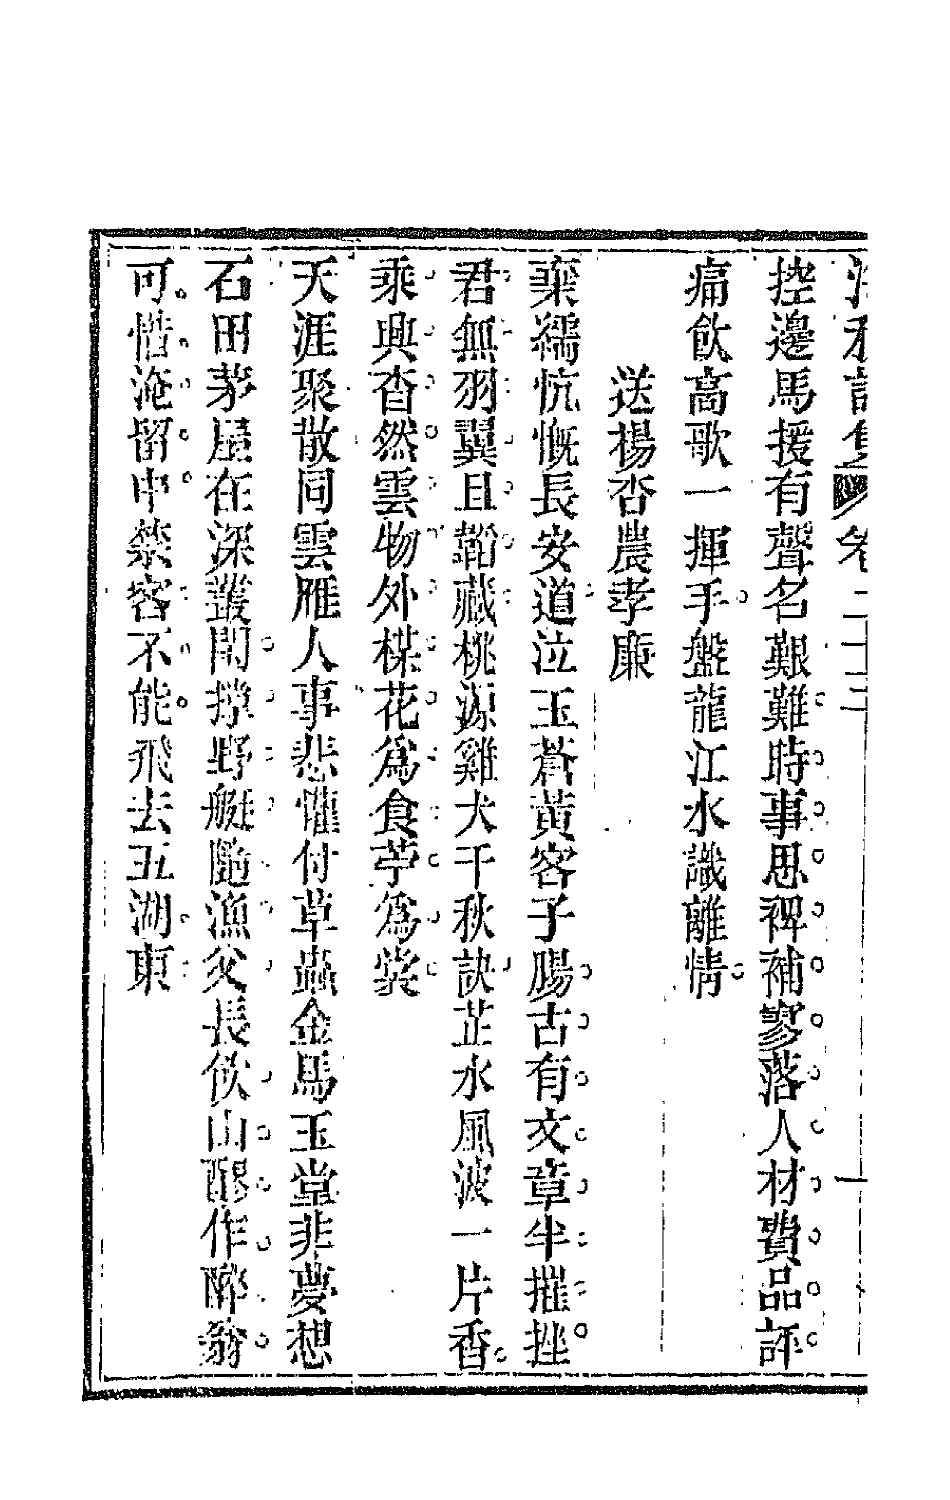 卷二十三 一
控邊馬援有聲名艱難時事思裨補寥落人材費品評
痛飲高歌一揮手盤龍江水識離情
送楊杏農孝廉
棄繻忼慨長安道泣玉蒼黃客子腸古有文章半摧挫
君無羽翼且韜藏桃源雞犬千秋訣芷水風波一片香
乘興杳然雲物外楳花爲食苧爲裳
天涯聚散同雲雁人事悲懽付草蟲金馬玉堂非夢想
石田茅屋在深叢閒撐野艇隨漁父長飲山醪作醉翁
可惜淹留申禁客不能飛去五湖東